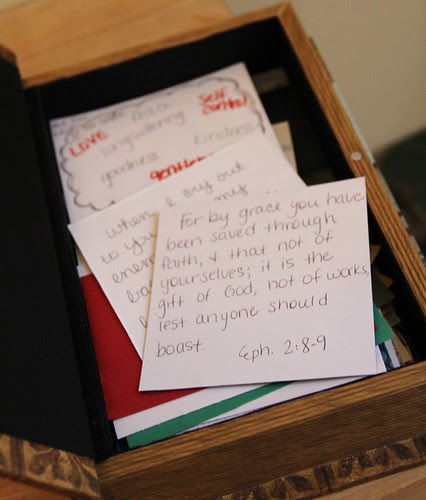 Self
Control
LOVE
longsuffering
kindness
goodness
when I cry out
to you
my
For by grace you have
been saved through
faith, & that not of
yourselves; it is the
gift of God, not of works,
lest anyone should
boast. Eph. 2:8-9